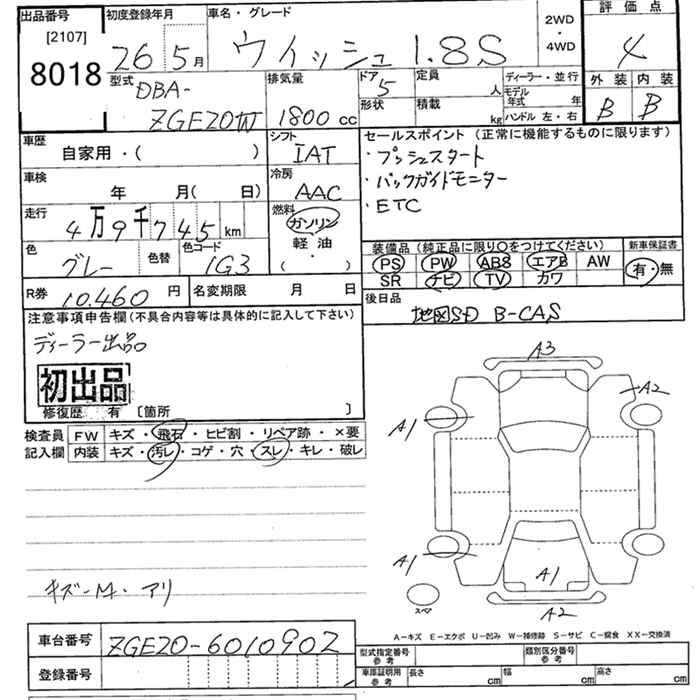 出品番号 [2107] 8018
初度登録年月 26 5月
車名・グレード ウィッシュ 1.8S
2WD・4WD
評価点 4
外装 B 内装 B
型式 DBA-ZGE20W
排気量 1800 cc
ドア 5
形状
定員 人
積載 kg
ディーラー・並行
モデル年式 年
ハンドル 左・右
車歴 自家用・( )
シフト IAT
車検 年 月( 日)
冷房 AAC
走行 4万9千745km
燃料 ガソリン 軽油 ( ・ )
色 グレー 色替 色コード 1G3
R券 10,460 円
名変期限 月 日
セールスポイント (正常に機能するものに限ります)
・プッシュスタート
・バックガイドモニター
・ETC
装備品 (純正品に限り○をつけてください)
新車保証書
PS PW ABS エアB AW
SR ナビ TV カワ
有・無
後日品 地図SD B-CAS
注意事項申告欄 (不具合内容等は具体的に記入して下さい)
ディーラー出品
初出品
修復歴 有 [箇所 ]
検査員記入欄
FW キズ・飛石・ヒビ割・リペア跡・×要
内装 キズ・汚レ・コゲ・穴・スレ・キレ・破レ
キズ-M・アリ
A3
A2
A1
A1
A1
A2
スペ
A-キズ E-エクボ U-凹み W-補修跡 S-サビ C-腐食 XX-交換済
車台番号 ZGE20-6010902
登録番号
型式指定番号 参考
類別区分番号 参考
車庫証明用 参考 長さ cm 幅 cm 高さ cm